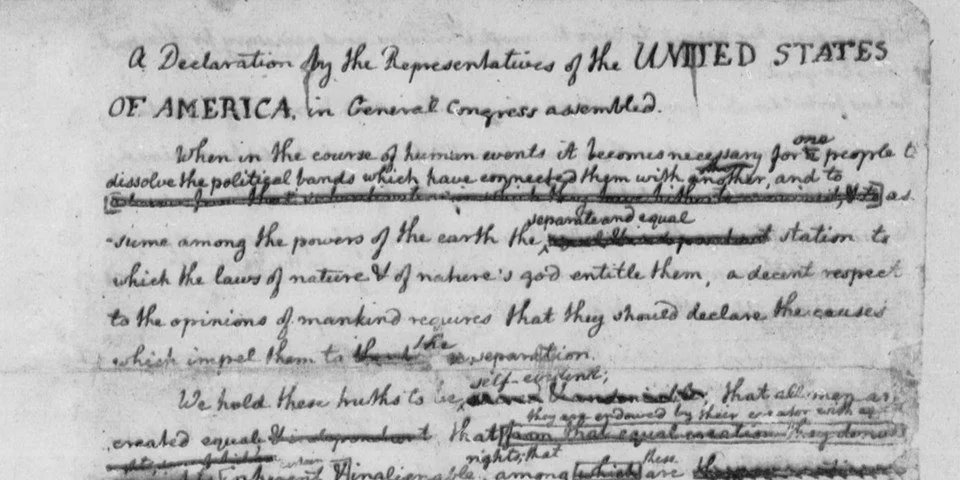 A Declaration by the Representatives of the UNITED STATES
OF AMERICA, in General Congress assembled.
When in the course of human events it becomes necessary for one people t
dissolve the political bands which have connected them with another, and to
as
-sume among the powers of the earth the separate and equal station to
which the laws of nature & of nature's god entitle them, a decent respect
to the opinions of mankind requires that they should declare the causes
which impel them to the separation.
We hold these truths to be self-evident; that all men ar
created equal & independent that they are endowed by their creator with eq
from that equal creation they derive
rights; that these
inherent & inalienable, among which are